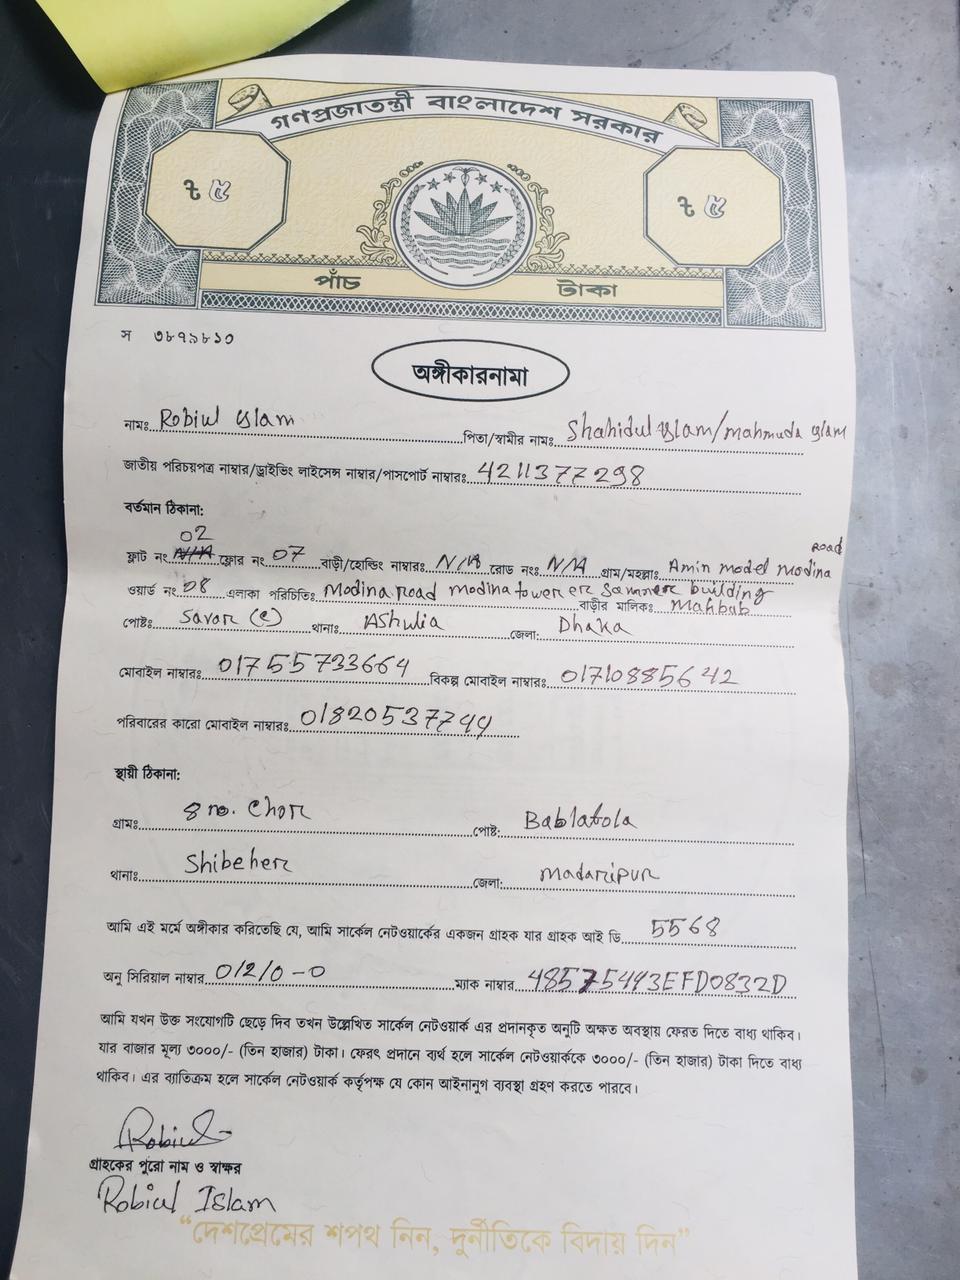 গণপ্রজাতন্ত্রী বাংলাদেশ সরকার
৳ ৫
৳ ৫
পাঁচ টাকা
স ৩৮৭৯৮১০
অঙ্গীকারনামা
নামঃ Robiul Islam পিতা/স্বামীর নামঃ Shahidul Islam/mahmuda Islam
জাতীয় পরিচয়পত্র নাম্বার/ড্রাইভিং লাইসেন্স নাম্বার/পাসপোর্ট নাম্বারঃ 4211377298
বর্তমান ঠিকানা:
ফ্লাট নং 02 ফ্লোর নং 07 বাড়ী/হোল্ডিং নাম্বারঃ N/A রোড নংঃ N/A গ্রাম/মহল্লাঃ Amin model Modina Road
ওয়ার্ড নং 08 এলাকা পরিচিতিঃ Modina Road Modina tower er samner building
বাড়ীর মালিকঃ Mahbab
পোষ্টঃ Savar (c) থানাঃ Ashulia জেলা: Dhaka
মোবাইল নাম্বারঃ 01755733664 বিকল্প মোবাইল নাম্বারঃ 01710885642
পরিবারের কারো মোবাইল নাম্বারঃ 01820537744
স্থায়ী ঠিকানা:
গ্রামঃ 8 no. Chor পোষ্ট: Bablatola
থানাঃ Shibcher জেলা: Madaripur
আমি এই মর্মে অঙ্গীকার করিতেছি যে, আমি সার্কেল নেটওয়ার্কের একজন গ্রাহক যার গ্রাহক আই ডি 5568
অনু সিরিয়াল নাম্বার 01210-0 ম্যাক নাম্বার 48575443EFD0832D
আমি যখন উক্ত সংযোগটি ছেড়ে দিব তখন উল্লেখিত সার্কেল নেটওয়ার্ক এর প্রদানকৃত অনুটি অক্ষত অবস্থায় ফেরত দিতে বাধ্য থাকিব।
যার বাজার মূল্য ৩০০০/- (তিন হাজার) টাকা। ফেরৎ প্রদানে ব্যর্থ হলে সার্কেল নেটওয়ার্ককে ৩০০০/- (তিন হাজার) টাকা দিতে বাধ্য
থাকিব। এর ব্যতিক্রম হলে সার্কেল নেটওয়ার্ক কর্তৃপক্ষ যে কোন আইনানুগ ব্যবস্থা গ্রহণ করতে পারবে।
Robiul
গ্রাহকের পুরো নাম ও স্বাক্ষর
Robiul Islam
“দেশপ্রেমের শপথ নিন, দুর্নীতিকে বিদায় দিন”